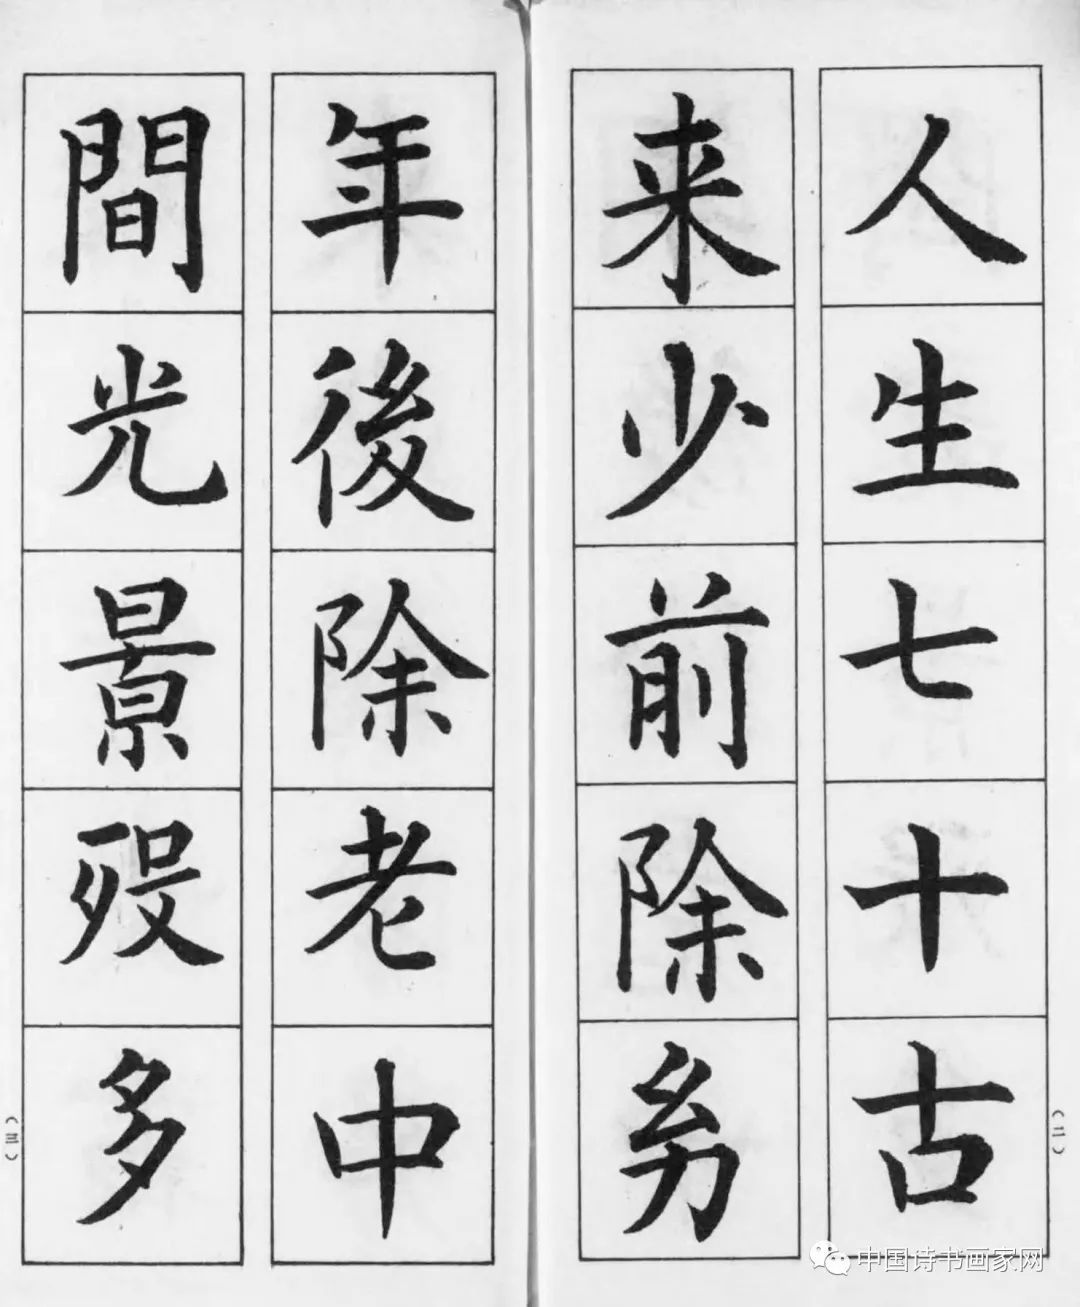 人生七十古
来少前除幼
（二）
年後除老中
間光景殁多
（三）
中国诗书画家网